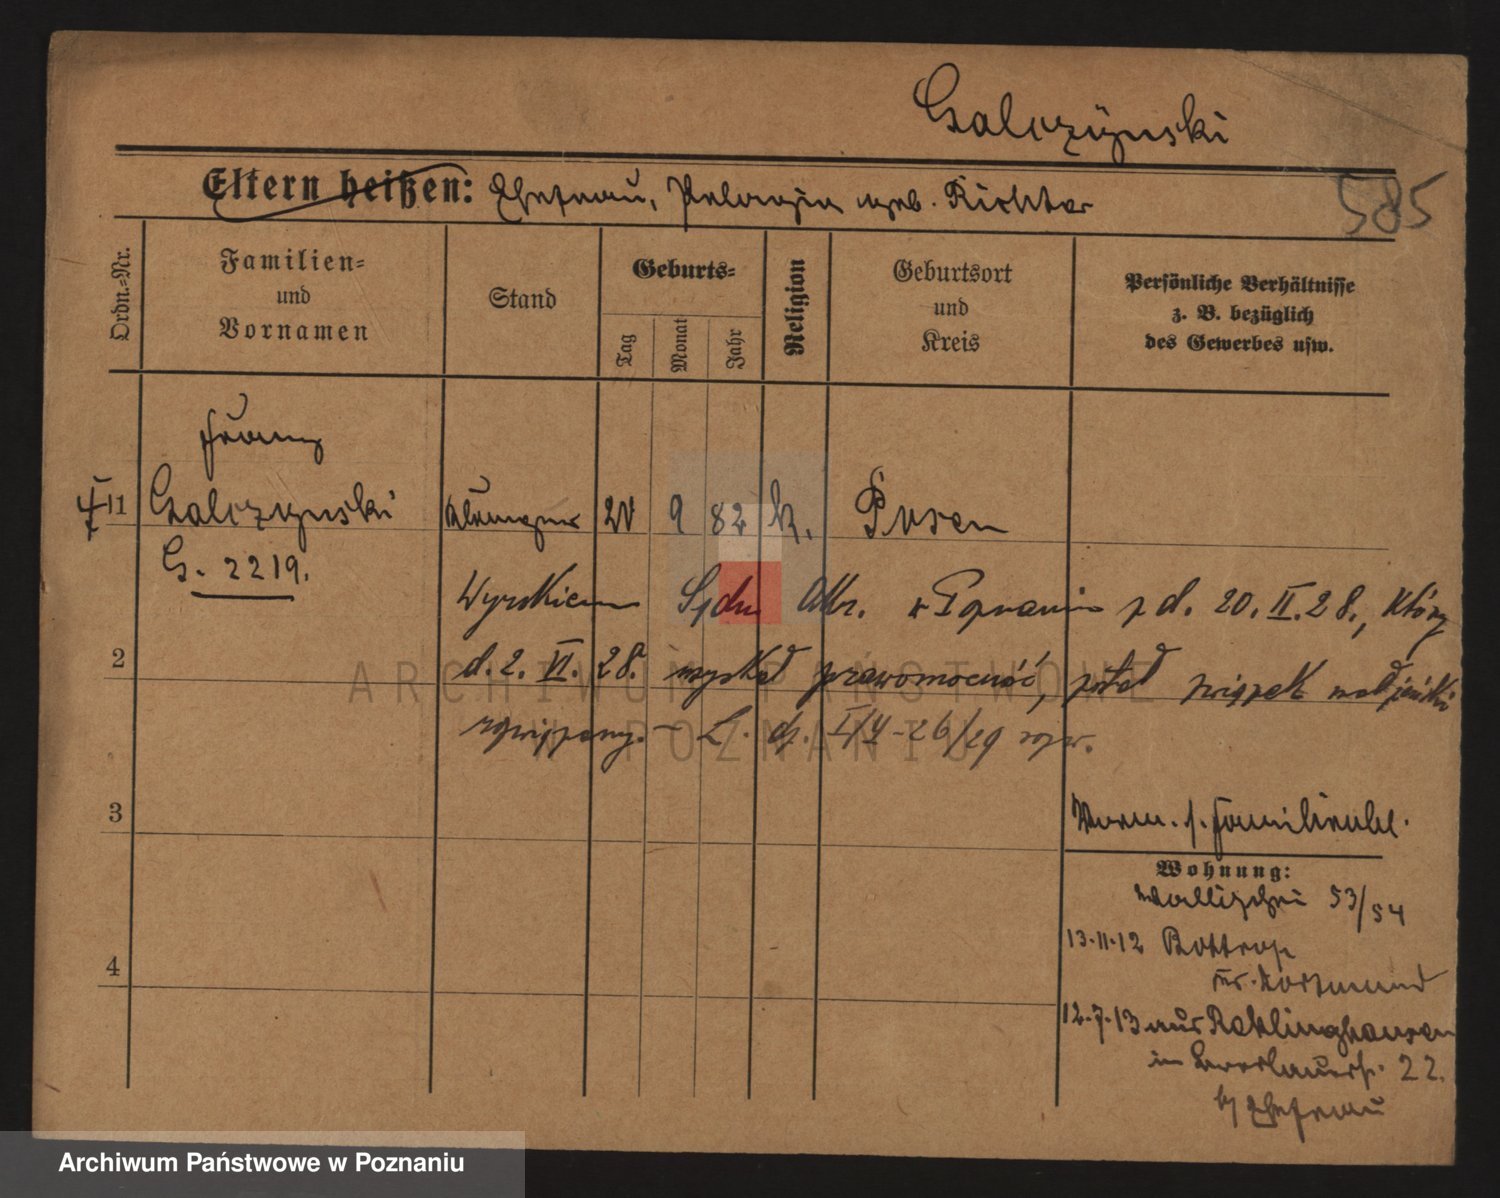 Galczynski
585
Eltern heißen: Ehefrau, Pelagia geb. Richter
Ordn.-Nr.
Familien-
und
Vornamen
Stand
Geburts-
Tag
Monat
Jahr
Religion
Geburtsort
und
Kreis
Persönliche Verhältnisse
z. B. bezüglich
des Gewerbes usw.
Franz
1 Galczynski Klempner 20 9 82 k. Posen
G. 2219.
Wyrokiem Sądu Okr. w Poznaniu z d. 20. II. 28., który
2
d. 2. VI. 28. uzyskał prawomocność, został związek małżeński
rozwiązany. - L. dz.
3
Verm. s. Familienbl.
Wohnung:
Wallischei 53/54
13.11.12 Bottrop
Kr. Dortmund
4
12.7.13 aus Recklinghausen
in Breslauerst. 22.
b/ Ehefrau
ARCHIWUM PAŃSTWOWE
W POZNANIU
Archiwum Państwowe w Poznaniu